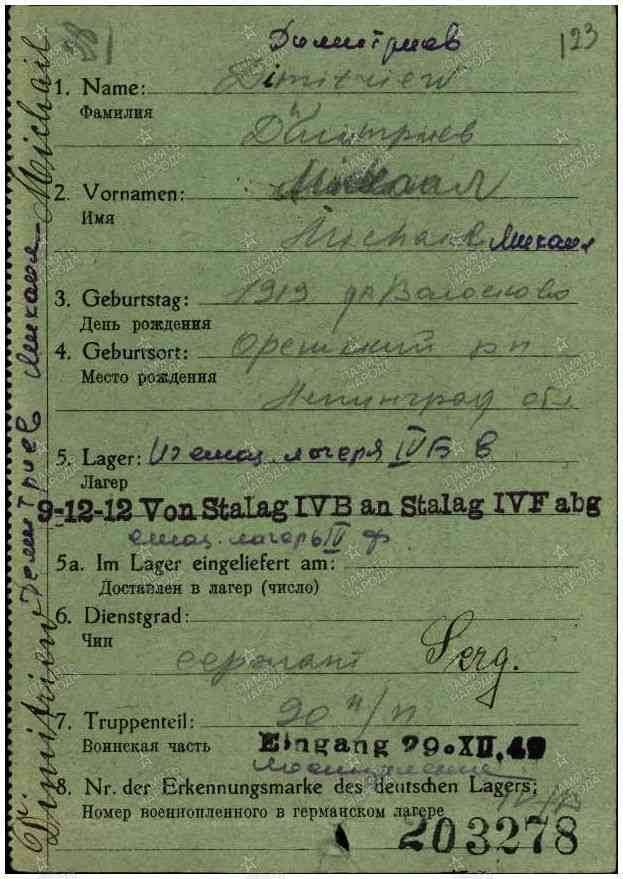 Димитриев
123
1. Name: Dimitriew
Фамилия
Дмитриев
2. Vornamen: Михаал
Имя
Michael Михаил
3. Geburtstag: 1919
День рождения
4. Geburtsort:
Место рождения
Ленинград обл
5. Lager: Из лагеря IVБ в
Лагер
9-12-12 Von Stalag IVB an Stalag IVF abg
лагерь IV ф
5a. Im Lager eingeliefert am:
Доставлен в лагер (число)
6. Dienstgrad:
Чин
сержант Serg.
7. Truppenteil: 20
Воинская часть Eingang 29. XII. 42
8. Nr. der Erkennungsmarke des deutschen Lagers;
Номер военнопленного в германском лагере
203278
Dimitriew Демитриев Михаил Michail
ПАМЯТЬ НАРОДА